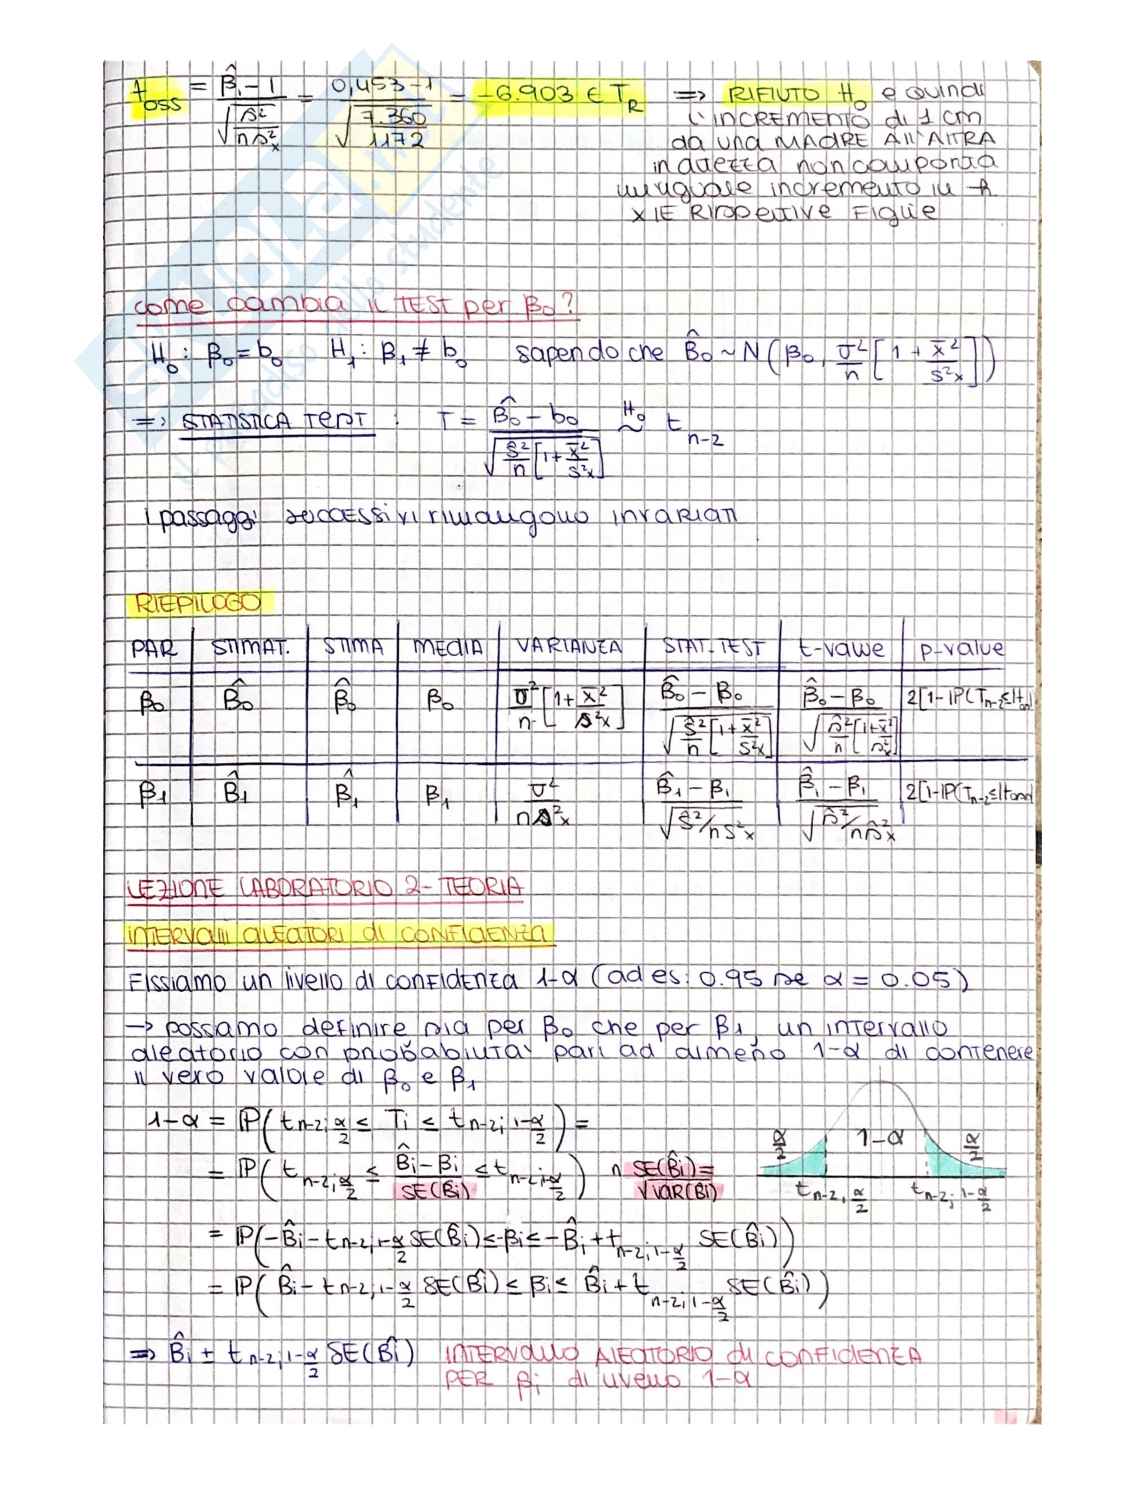 toss = β̂₁ - 1 / √(s²/ns²x) = 0,453 - 1 / √(7.360/1172) = -6.903 ∈ T_R ⇒ RIFIUTO H₀ e quindi
l'INCREMENTO di 1 cm
da una MADRE All'AlTRA
in altezza non comporta
un uguale incremento in h
x lE RIspettive FIGlie
come cambia Il TEST per β₀?
H₀: β₀ = b₀ H₁: β₁ ≠ b₀ sapendo che β̂₀ ~ N(β₀, σ²/n [1 + x̄²/s²x])
⇒ STATISTICA TEST: T = β̂₀ - b₀ / √(ŝ²/n [1 + x̄²/s²x]) ~H₀ t n-2
i passaggi successivi rimangono invariati
RIEPILOGO
PAR STIMAT. STIMA MEDIA VARIANZA STAT. TEST t-value p-value
β₀ B̂₀ β̂₀ β₀ σ²/n [1 + x̄²/s²x] B̂₀ - β₀ / √(ŝ²/n [1 + x̄²/s²x]) β̂₀ - β₀ / √(ŝ²/n [1 + x̄²/s²x]) 2[1-IP(Tn-2≤|toss|
β₁ B̂₁ β̂₁ β₁ σ²/ns²x B̂₁ - β₁ / √(ŝ²/ns²x) β̂₁ - β₁ / √(ŝ²/nŝ²x) 2[1-IP(Tn-2≤|toss|
LEZIONE LABORATORIO 2 - TEORIA
INTERVAlli aleatori di confidenza
Fissiamo un livello di confidenza 1-α (ad es: 0.95 se α = 0.05)
→ possamo definire sia per β₀ che per β₁ un intervallo
aleatorio con probabilità pari ad almeno 1-α di contenere
il vero valore di β₀ e β₁
1-α = IP(t n-2; α/2 ≤ Ti ≤ t n-2; 1-α/2) =
= IP(t n-2; α/2 ≤ B̂i - βi / SE(B̂i) ≤ t n-2; 1-α/2) n SE(B̂i) = √VAR(B̂i)
α/2 1-α α/2
t n-2, α/2 t n-2; 1-α/2
= IP(-B̂i - t n-2; 1-α/2 SE(B̂i) ≤ -βi ≤ -B̂i + t n-2; 1-α/2 SE(B̂i))
= IP(B̂i - t n-2; 1-α/2 SE(B̂i) ≤ βi ≤ B̂i + t n-2; 1-α/2 SE(B̂i))
⇒ B̂i ± t n-2; 1-α/2 SE(B̂i) INTERVALLO ALEATORIO di CONFIDENZA
PER βi di livello 1-α